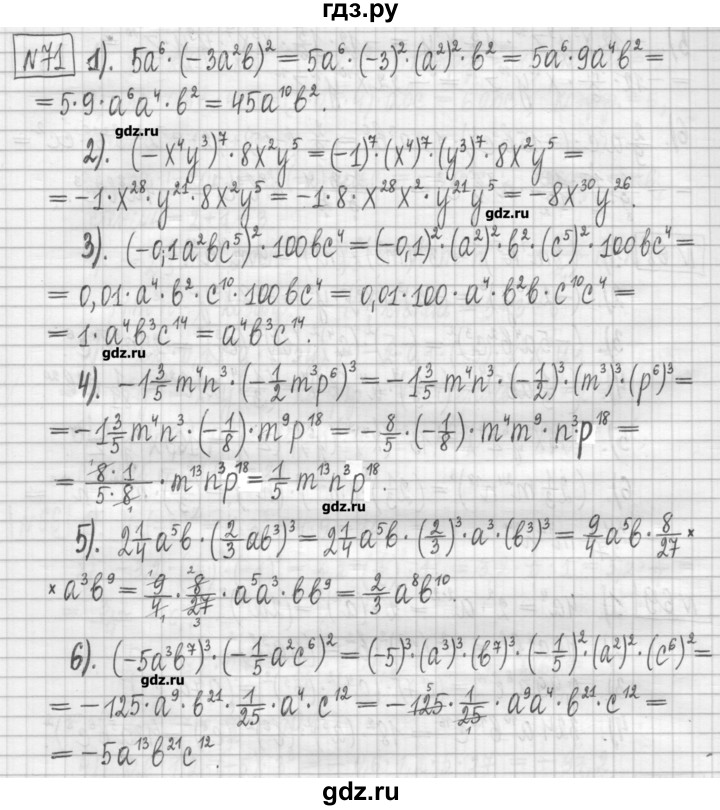 гдз.ру
№71 1). 5a⁶ · (−3a²b)² = 5a⁶ · (−3)² · (a²)² · b² = 5a⁶ · 9a⁴b² =
= 5 · 9 · a⁶a⁴ · b² = 45a¹⁰b².
gdz.ru
2). (−x⁴y³)⁷ · 8x²y⁵ = (−1)⁷ · (x⁴)⁷ · (y³)⁷ · 8x²y⁵ =
= −1 · x²⁸ · y²¹ · 8x²y⁵ = −1 · 8 · x²⁸x² · y²¹y⁵ = −8x³⁰y²⁶.
gdz.ru
3). (−0,1a²bc⁵)² · 100bc⁴ = (−0,1)² · (a²)² · b² · (c⁵)² · 100bc⁴ =
= 0,01 · a⁴ · b² · c¹⁰ · 100bc⁴ = 0,01 · 100 · a⁴ · b²b · c¹⁰c⁴ =
= 1 · a⁴b³c¹⁴ = a⁴b³c¹⁴.
gdz.ru
4). −1 3/5 m⁴n³ · (−1/2 m³p⁶)³ = −1 3/5 m⁴n³ · (−1/2)³ · (m³)³ · (p⁶)³ =
= −1 3/5 m⁴n³ · (−1/8) · m⁹p¹⁸ = −8/5 · (−1/8) · m⁴m⁹ · n³p¹⁸ =
= (¹8 · 1)/(5 · 8₁) · m¹³n³p¹⁸ = 1/5 m¹³n³p¹⁸.
gdz.ru
5). 2 1/4 a⁵b · (2/3 ab³)³ = 2 1/4 a⁵b · (2/3)³ · a³ · (b³)³ = 9/4 a⁵b · 8/27 ×
× a³b⁹ = ¹9/4₁ · ²8/27₃ · a⁵a³ · bb⁹ = 2/3 a⁸b¹⁰.
6). (−5a³b⁷)³ · (−1/5 a²c⁶)² = (−5)³ · (a³)³ · (b⁷)³ · (−1/5)² · (a²)² · (c⁶)² =
gdz.ru
= −125 · a⁹ · b²¹ · 1/25 · a⁴ · c¹² = −125⁵ · 1/25₁ · a⁹a⁴ · b²¹ · c¹² =
= −5a¹³b²¹c¹².
gdz.ru
gdz.ru